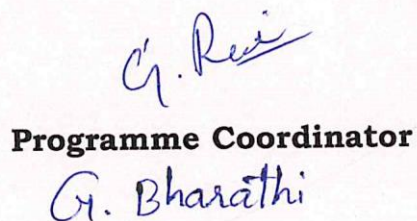 G. Revi
Programme Coordinator
G. Bharathi